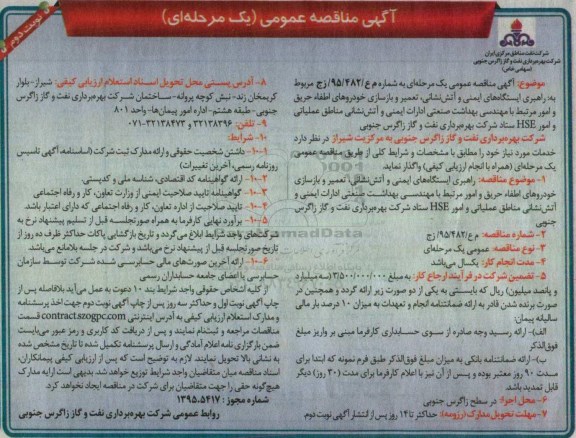 آگهی مناقصه عمومی (یک مرحله‌ای)
نوبت دوم
شرکت نفت مناطق مرکزی ایران
شرکت بهره‌برداری نفت و گاز زاگرس جنوبی
(سهامی خاص)
موضوع: آگهی مناقصه عمومی یک مرحله‌ای به شماره م ع/۹۵/۴۸۲/ زج مربوط
به: راهبری ایستگاه‌های ایمنی و آتش‌نشانی، تعمیر و بازسازی خودروهای اطفاء حریق
و امور مرتبط با مهندسی بهداشت صنعتی ادارات ایمنی و آتش نشانی مناطق عملیاتی
و امور HSE ستاد شرکت بهره‌برداری نفت و گاز زاگرس جنوبی
شرکت بهره‌برداری نفت و گاز زاگرس جنوبی به مرکزیت شیراز در نظر دارد
خدمات مورد نیاز خود را مطابق با مشخصات و شرایط کلی از طریق مناقصه عمومی
یک مرحله‌ای (همراه با انجام ارزیابی کیفی) واگذار نماید.
۱- موضوع مناقصه: راهبری ایستگاه‌های ایمنی و آتش‌نشانی، تعمیر و بازسازی
خودروهای اطفاء حریق و امور مرتبط با مهندسی بهداشت صنعتی ادارات ایمنی و
آتش‌نشانی مناطق عملیاتی و امور HSE ستاد شرکت بهره‌برداری نفت و گاز زاگرس
جنوبی
۲- شماره مناقصه: م ع/۹۵/۴۸۲/ زج
۳- نوع مناقصه: عمومی یک مرحله‌ای
۴- مدت انجام کار: یکسال می‌باشد
۵- تضمین شرکت در فرآیند ارجاع کار: به مبلغ ۳/۵۰۰/۰۰۰/۰۰۰ (سه میلیارد
و پانصد میلیون) ریال که بایستی به یکی از دو صورت زیر ارائه گردد و همچنین در
صورت برنده شدن قادر به ارائه ضمانتنامه انجام و تعهدات به میزان ۱۰ درصد بار مالی
سالیانه پیمان:
الف)- ارائه رسید وجه صادره از سوی حسابداری کارفرما مبنی بر واریز مبلغ
فوق‌الذکر
ب)- ارائه ضمانتنامه بانکی به میزان مبلغ فوق‌الذکر طبق فرم نمونه که ابتدا برای
مدت ۹۰ روز معتبر بوده و پس از آن نیز با اعلام کارفرما برای مدت (۳۰ روز) دیگر
قابل تمدید باشد
۶- محل اجرا: در سطح زاگرس جنوبی
۷- مهلت تحویل مدارک (رزومه): حداکثر تا ۱۴ روز پس از انتشار آگهی نوبت دوم.
۸- آدرس پستی محل تحویل اسناد استعلام ارزیابی کیفی: شیراز- بلوار
کریمخان زند- نبش کوچه پروانه- ساختمان شرکت بهره‌برداری نفت و گاز زاگرس
جنوبی- طبقه هشتم- اداره امور پیمان‌ها- واحد ۸۰۱
۹- تلفن: ۳۲۱۳۸۳۹۶ و ۳۲۱۳۸۴۷۳-۰۷۱
۱۰- شرایط:
۱-۱۰- داشتن شخصیت حقوقی و ارائه مدارک ثبت شرکت (اساسنامه، آگهی تاسیس
روزنامه رسمی آخرین تغییرات)
۲-۱۰- ارائه گواهینامه کد اقتصادی، شناسه ملی و کدپستی.
۳-۱۰- گواهینامه تایید صلاحیت ایمنی از وزارت تعاون، کار و رفاه اجتماعی
۴-۱۰- تایید صلاحیت از اداره تعاون، کار و رفاه اجتماعی که دارای اعتبار باشد.
۵-۱۰- برآورد نهایی کارفرما به همراه صورتجلسه قبل از تسلیم پیشنهاد نرخ به
شرکت‌های واجد شرایط ابلاغ می‌گردد و تاریخ بازگشایی پاکات حداکثر ظرف ده روز از
تاریخ صورتجلسه قبل از پیشنهاد نرخ می‌باشد و شرکت در جلسه بلامانع می‌باشد.
۶-۱۰- ارائه آخرین صورت‌های مالی حسابرسی شده توسط سازمان
حسابرسی یا اعضای جامعه حسابداران رسمی
از کلیه اشخاص حقوقی واجد شرایط بند ۱۰ دعوت به عمل می‌آید بلافاصله پس از
چاپ آگهی نوبت اول و حداکثر سه روز پس از چاپ آگهی نوبت دوم جهت اخذ پرسشنامه
و مدارک استعلام ارزیابی کیفی به آدرس اینترنتی contract.szogpc.com قسمت
مناقصات مراجعه و ثبت‌نام نمایند و پس از دریافت کد کاربری و رمز عبور می‌بایست
ضمن بارگزاری نامه اعلام آمادگی و ارسال پرسشنامه تکمیل شده تا تاریخ مشخص شده
به نشانی بالا تحویل نمایند. لازم به توضیح است که پس از ارزیابی کیفی پیمانکاران،
اسناد مناقصه میان متقاضیان واجد شرایط توزیع خواهد شد. بدیهی است ارایه مدارک
هیچ‌گونه حقی را جهت متقاضیان برای شرکت در مناقصه ایجاد نخواهد کرد.
شماره مجوز: ۱۳۹۵.۵۴۱۷
روابط عمومی شرکت بهره‌برداری نفت و گاز زاگرس جنوبی